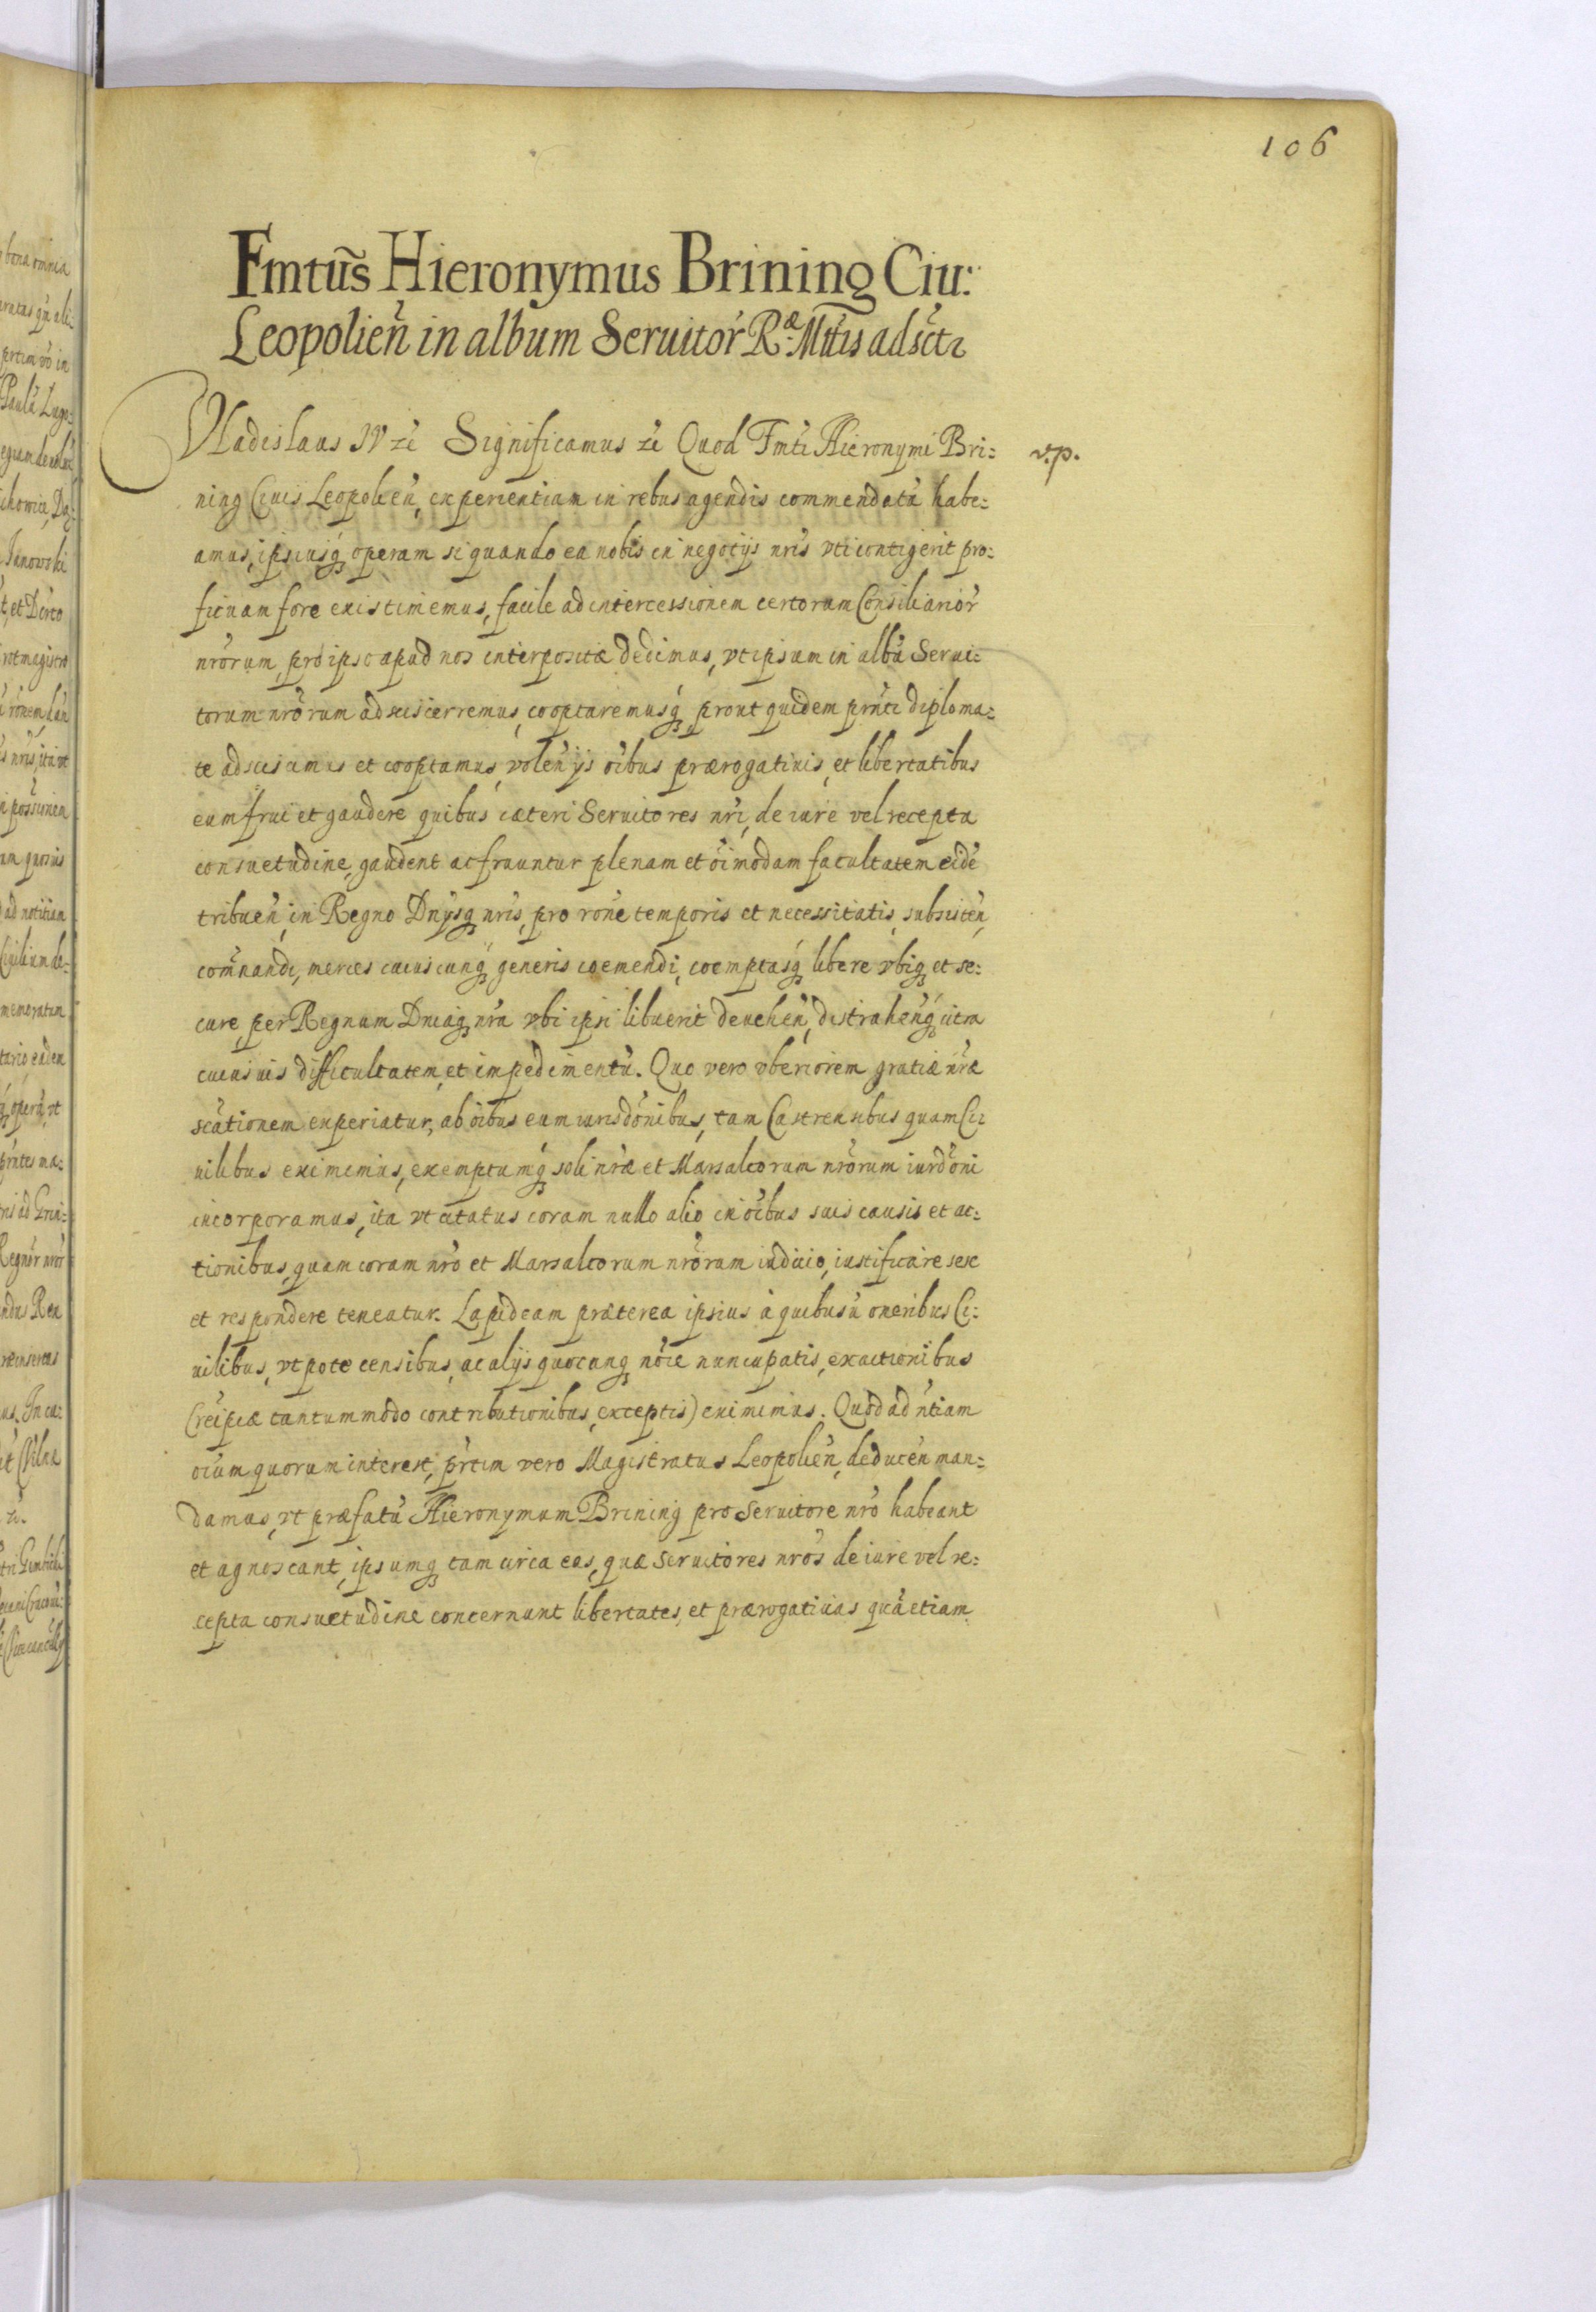 106
Fmtus̃ Hieronymus Brining Ciu:
Leopolien̄ in album Seruitor̃ Ræ: Mttis adsctr
Vladislaus IV zc̃ Significamus zc̃ Quod Fmti Hieronymi Bri:
v.p.
ning Ciuis Leopolien̄, experientiam in rebus agendis commendatū habe:
amus, ipsiusq; operam si quando ea nobis in negotÿs nr̃is vti contigerit pro:
ficuam fore existimemus, facile ad intercessionem certorum Consiliarior̃
nr̃orum pro ipso apud nos interpositæ dedimus, vt ipsum in albū Serui:
torum nr̃orum adscisceremus, cooptaremusq; prout quidem pr̃nti diploma:
te adsciscimus et cooptamus, volen̄ ÿs oībus prærogatiuis, et libertatibus
eum frui et gaudere quibus cæteri Seruitores nr̃i, de iure vel recepta
consuetudine, gaudent ac fruuntur plenam et oīmodam facultatem eidē
tribuen̄, in Regno Dnÿsq; nr̃is, pro rōne temporis et necessitatis, subsisten̄,
com̄nandi, merces cuiuscunq; generis coemendi, coemptasq; libere vbiq; et se:
cure, per Regnum Dniaq; nr̃a vbi ipsi libuerit deuehen̄, distrahen̄q; citra
cuiusuis difficultatem, et impedimentū. Quo vero vberiorem gratiæ nr̃æ
sc̃ationem experiatur, ab oībus eum iurisdōnibus, tam Castrensibus quam Ci:
uilibus eximimus, exemptumq; soli nr̃æ et Marsalcorum nr̃orum iurdōni
incorporamus, ita vt citatus coram nullo alio in oībus suis causis et ac:
tionibus, quam coram nr̃o et Marsalcorum nr̃orum iudicio, iustificare sese
et respondere teneatur. Lapideam præterea ipsius à quibusū oneribus Ci:
uilibus, vtpote censibus, ac alÿs quocunq; nōie nuncupatis, exactionibus
(reipcæ tantummodo contributionibus, exceptis) eximimus. Quod ad n̄tiam
oīum quorum interest, pr̃tim vero Magistratus Leopolien̄, deducen̄ man:
damus, vt præfatū Hieronymum Brining pro Seruitore nr̃o habeant
et agnoscant, ipsumq; tam circa eas, quæ Seruitores nr̃os de iure vel re:
cepta consuetudine concernunt libertates, et prærogatiuas quā etiam